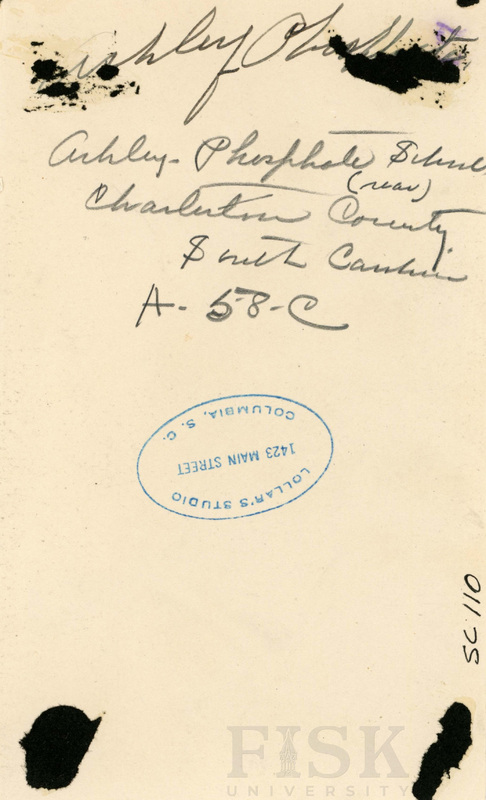 Ashley Phosphate
Ashley-Phosphate School
(rear)
Charleston County
South Carolina
A-58-C
LOLLAR'S STUDIO
1423 MAIN STREET
COLUMBIA, S. C.
SC 110
FISK
UNIVERSITY